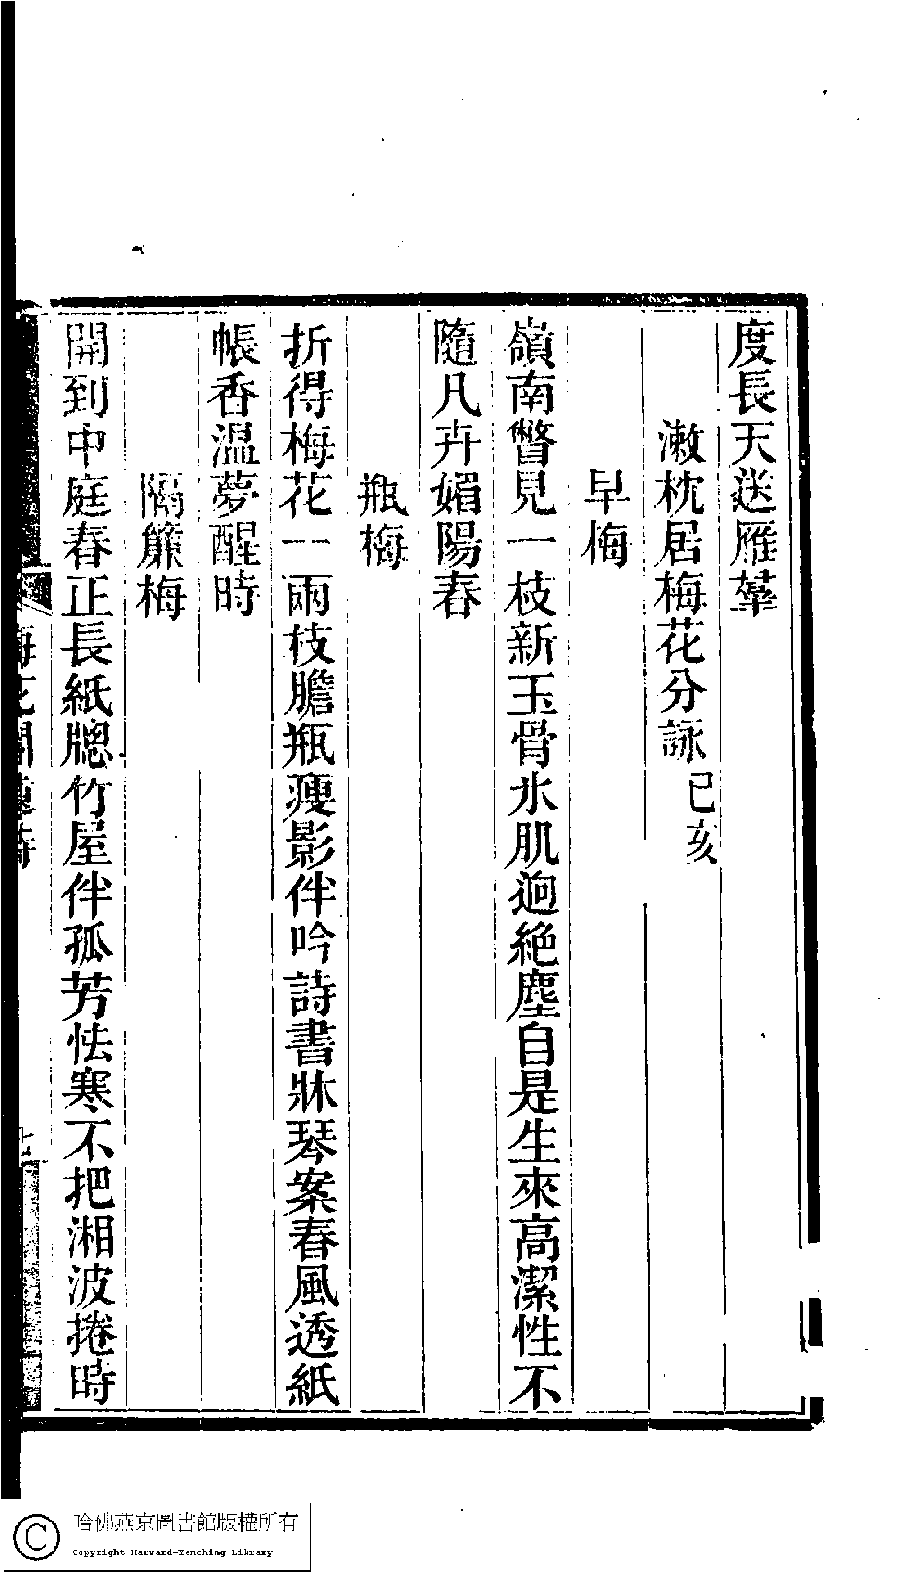 度長天送雁羣
漱枕居梅花分詠己亥
早梅
嶺南瞥見一枝新玉骨氷肌迥絕塵自是生來高潔性不
隨凡卉媚陽春
瓶梅
折得梅花一兩枝膽瓶瘦影伴吟詩書牀琴案春風透紙
帳香溫夢醒時
隔簾梅
開到中庭春正長紙牕竹屋伴孤芳怯寒不把湘波捲時
哈佛燕京圖書館版權所有
Copyright Harvard-Yenching Library